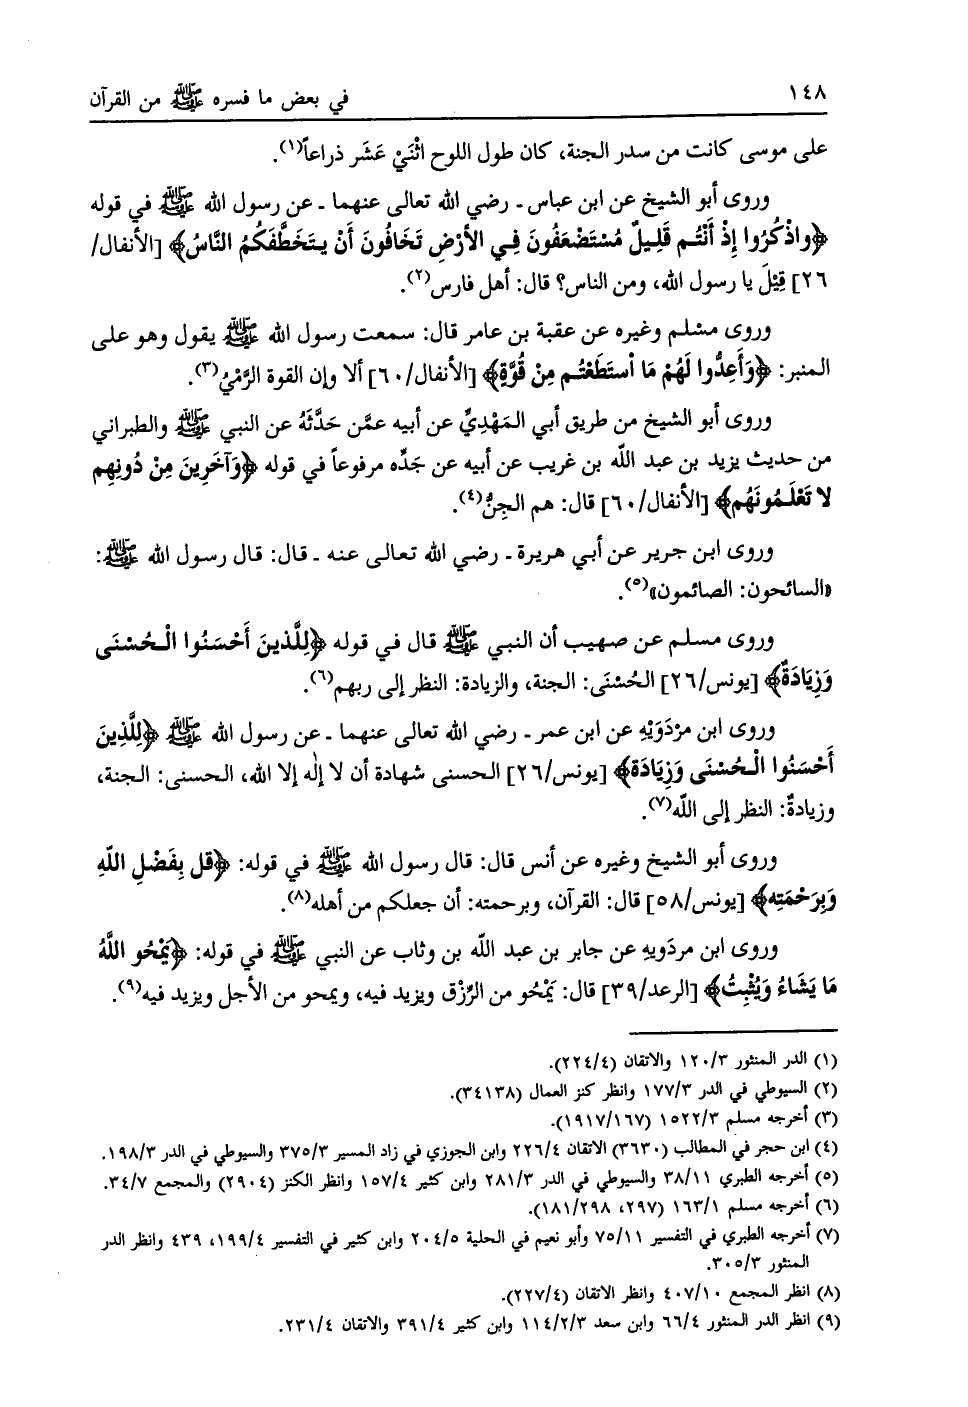 ١٤٨
في بعض ما فسره ﷺ من القرآن
على موسى كانت من سدر الجنة، كان طول اللوح اثْنَيْ عَشَر ذراعاً(١).
وروى أبو الشيخ عن ابن عباس ـ رضي الله تعالى عنهما ـ عن رسول الله ﷺ في قوله
﴿واذْكُرُوا إِذْ أَنْتُم قَلِيلٌ مُسْتَضْعَفُونَ فِي الأرْضِ تَخَافُونَ أَنْ يتخَطَّفَكُمُ النَّاسُ﴾ [الأنفال/
٢٦] قِيْلَ يا رسول الله، ومن الناس؟ قال: أهل فارس(٢).
وروى مسْلم وغيره عن عقبة بن عامر قال: سمعت رسول الله ﷺ يقول وهو على
المنبر: ﴿وَأَعِدُّوا لَهُمْ مَا اسْتَطَعْتُم مِنْ قُوَّةٍ﴾ [الأنفال/٦٠] ألا وإن القوة الرَّمْيُ(٣).
وروى أبو الشيخ من طريق أبي المَهْدِيِّ عن أبيه عمَّن حَدَّثَهُ عن النبي ﷺ والطبراني
من حديث يزيد بن عبد اللّه بن غريب عن أبيه عن جَدِّه مرفوعاً في قوله ﴿وَآخَرِينَ مِنْ دُونِهِم
لا تَعْلَمُونَهُم﴾ [الأنفال/٦٠] قال: هم الجِنُّ(٤).
وروى ابن جرير عن أبي هريرة ـ رضي الله تعالى عنه ـ قال: قال رسول الله ﷺ:
«السائحون: الصائمون»(٥).
وروى مسلم عن صهيب أن النبي ﷺ قال في قوله ﴿لِلَّذينَ أَحْسَنُوا الْحُسْنَى
وَزِيَادَةٌ﴾ [يونس/٢٦] الحُسْنَى: الجنة، والزيادة: النظر إلى ربهم(٦).
وروى ابن مرْدَوَيْهِ عن ابن عمر ـ رضي الله تعالى عنهما ـ عن رسول الله ﷺ ﴿لِلَّذِينَ
أَحْسَنُوا الْحُسْنَى وَزِيَادَة﴾ [يونس/٢٦] الحسنى شهادة أن لا إلٰه إلا الله، الحسنى: الجنة،
وزيادةٌ: النظر إلى اللّه(٧).
وروى أبو الشيخ وغيره عن أنس قال: قال رسول الله ﷺ في قوله: ﴿قل بِفَضْلِ اللّهِ
وَبِرَحْمَتِه﴾ [يونس/٥٨] قال: القرآن، وبرحمته: أن جعلكم من أهله(٨).
وروى ابن مردَويهِ عن جابر بن عبد اللّه بن وثاب عن النبي ﷺ في قوله: ﴿يَمْحُو اللَّهُ
مَا يَشَاءُ وَيُثْبِتُ﴾ [الرعد/٣٩] قال: يَمْحُو من الرِّزْق ويزيد فيه، ويمحو من الأجل ويزيد فيه(٩).
(١) الدر المنثور ١٢٠/٣ والاتقان (٢٢٤/٤).
(٢) السيوطي في الدر ١٧٧/٣ وانظر كنز العمال (٣٤١٣٨).
(٣) أخرجه مسلم ١٥٢٢/٣ (١٩١٧/١٦٧).
(٤) ابن حجر في المطالب (٣٦٣٠) الاتقان ٢٢٦/٤ وابن الجوزي في زاد المسير ٣٧٥/٣ والسيوطي في الدر ١٩٨/٣.
(٥) أخرجه الطبري ٣٨/١١ والسيوطي في الدر ٢٨١/٣ وابن كثير ١٥٧/٤ وانظر الكنز (٢٩٠٤) والمجمع ٣٤/٧.
(٦) أخرجه مسلم ١٦٣/١ (٢٩٧، ١٨١/٢٩٨).
(٧) أخرجه الطبري في التفسير ٧٥/١١ وأبو نعيم في الحلية ٢٠٤/٥ وابن كثير في التفسير ١٩٩/٤، ٤٣٩ وانظر الدر
المنثور ٣٠٥/٣.
(٨) انظر المجمع ٤٠٧/١٠ وانظر الاتقان (٢٢٧/٤).
(٩) انظر الدر المنثور ٦٦/٤ وابن سعد ١١٤/٢/٣ وابن كثير ٣٩١/٤ والاتقان ٢٣١/٤.